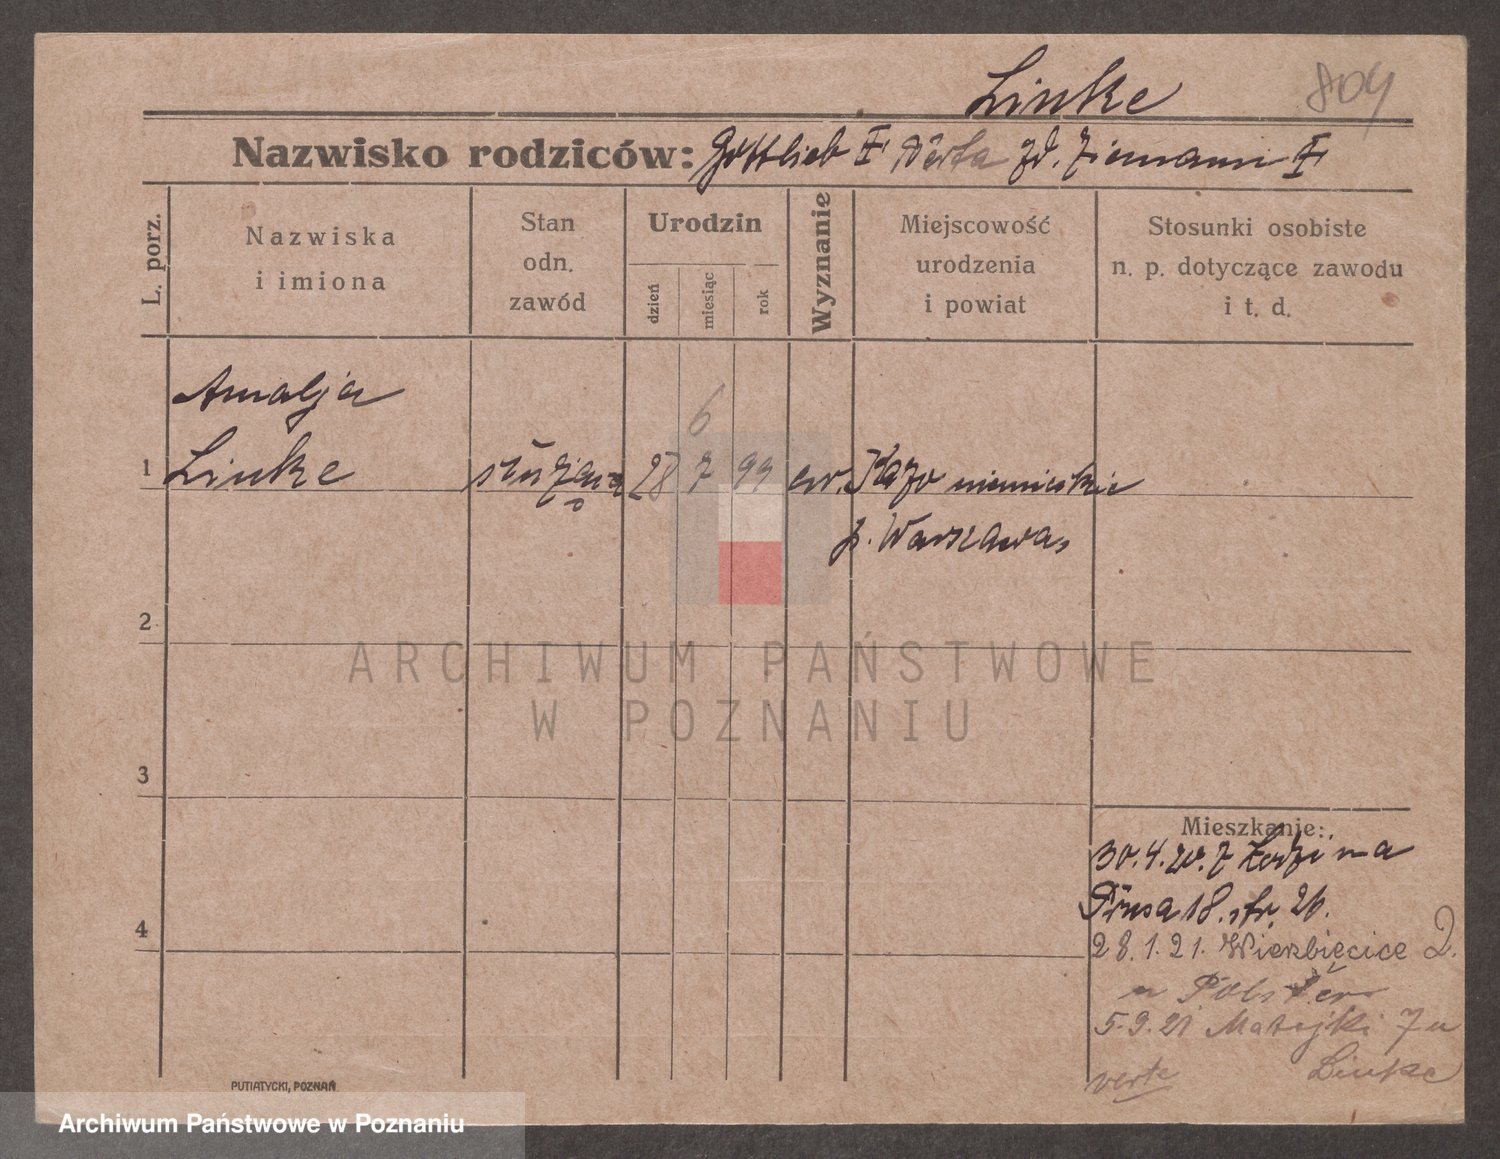 Linke 804
Nazwisko rodziców: Gottlieb Berta zd. Ziemann
L. porz.
Nazwiska i imiona
Stan odn. zawód
Urodzin
dzień
miesiąc
rok
Wyznanie
Miejscowość urodzenia i powiat
Stosunki osobiste n. p. dotyczące zawodu i t. d.
Amalja
6
1 Linke służąca 28 7 99 ew. niemieckie
p. Warszawa
2
ARCHIWUM PAŃSTWOWE
W POZNANIU
3
Mieszkanie:
30.4.20. z
Prusa 18. 26.
4
28.1.21. Wierzbięcice 2.
u
5.9.21 Matejki 7 u
verte Linke
PUTIATYCKI, POZNAŃ
Archiwum Państwowe w Poznaniu